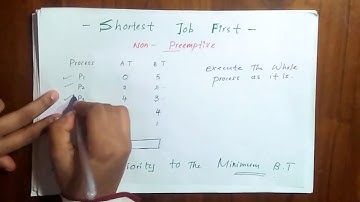 - Shortest Job First -
Non - Preemptive
Process A T B T
P1 0 5
P2 2 2
4 3
4
1
execute The Whole
process as it is.
to The Minimum B.T